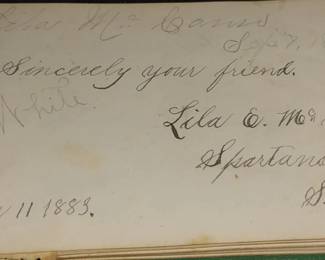 Lila Mc Cann
Sept 7,
Sincerely your friend.
White.
Lila E. Mc
Spartan
S
11 1883.